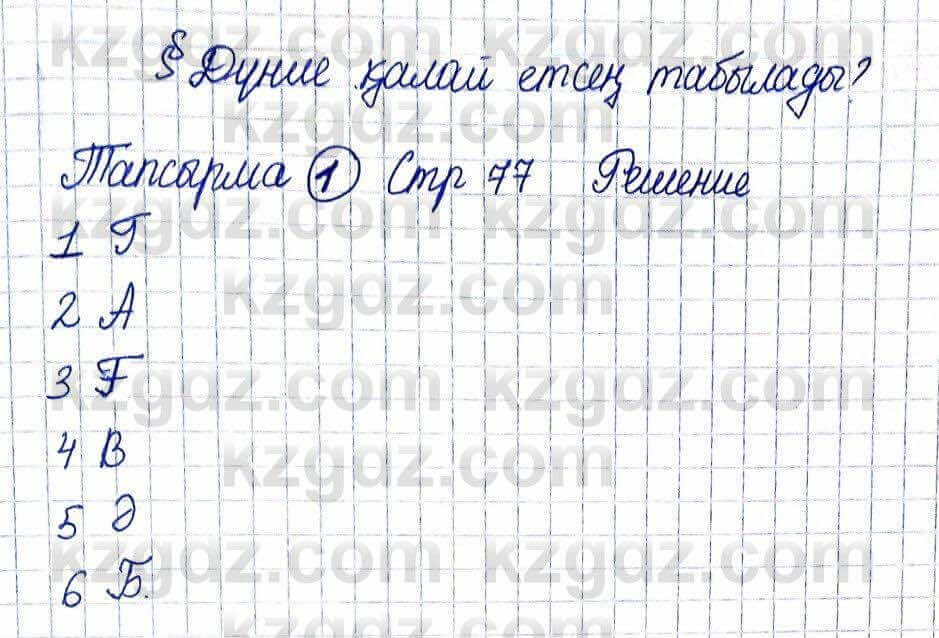 § Дүние қалай етсең табылады?
Тапсырма 1 Стр 77 Решение
1 Г
2 А
3 Ғ
4 В
5 Ә
6 Б.
kzgdz.com